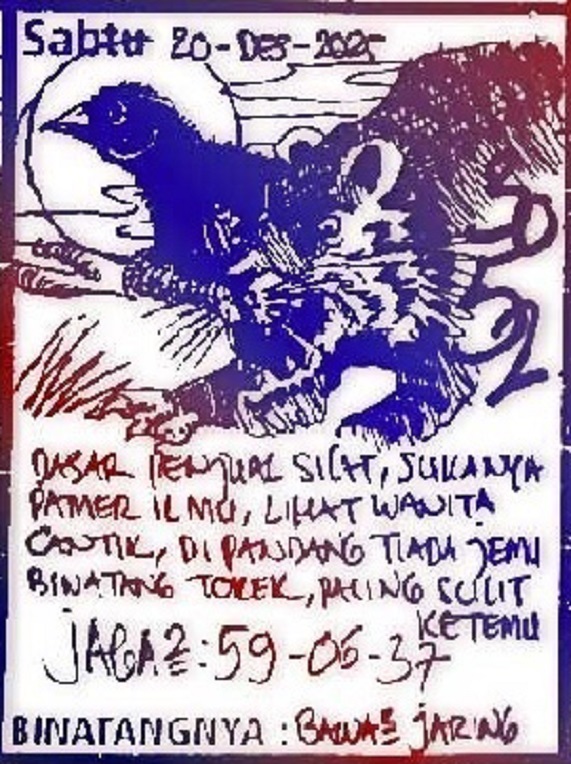 Sabtu 20-DES-2025
DASAR PENJUAL SILAT, SUKANYA
PAMER ILMU, LIHAT WANITA
CANTIK, DIPANDANG TIADA JEMU
BINATANG TOKEK, PALING SULIT
KETEMU
JAGA2:59-06-37
BINATANGNYA : BAWA2 JARING